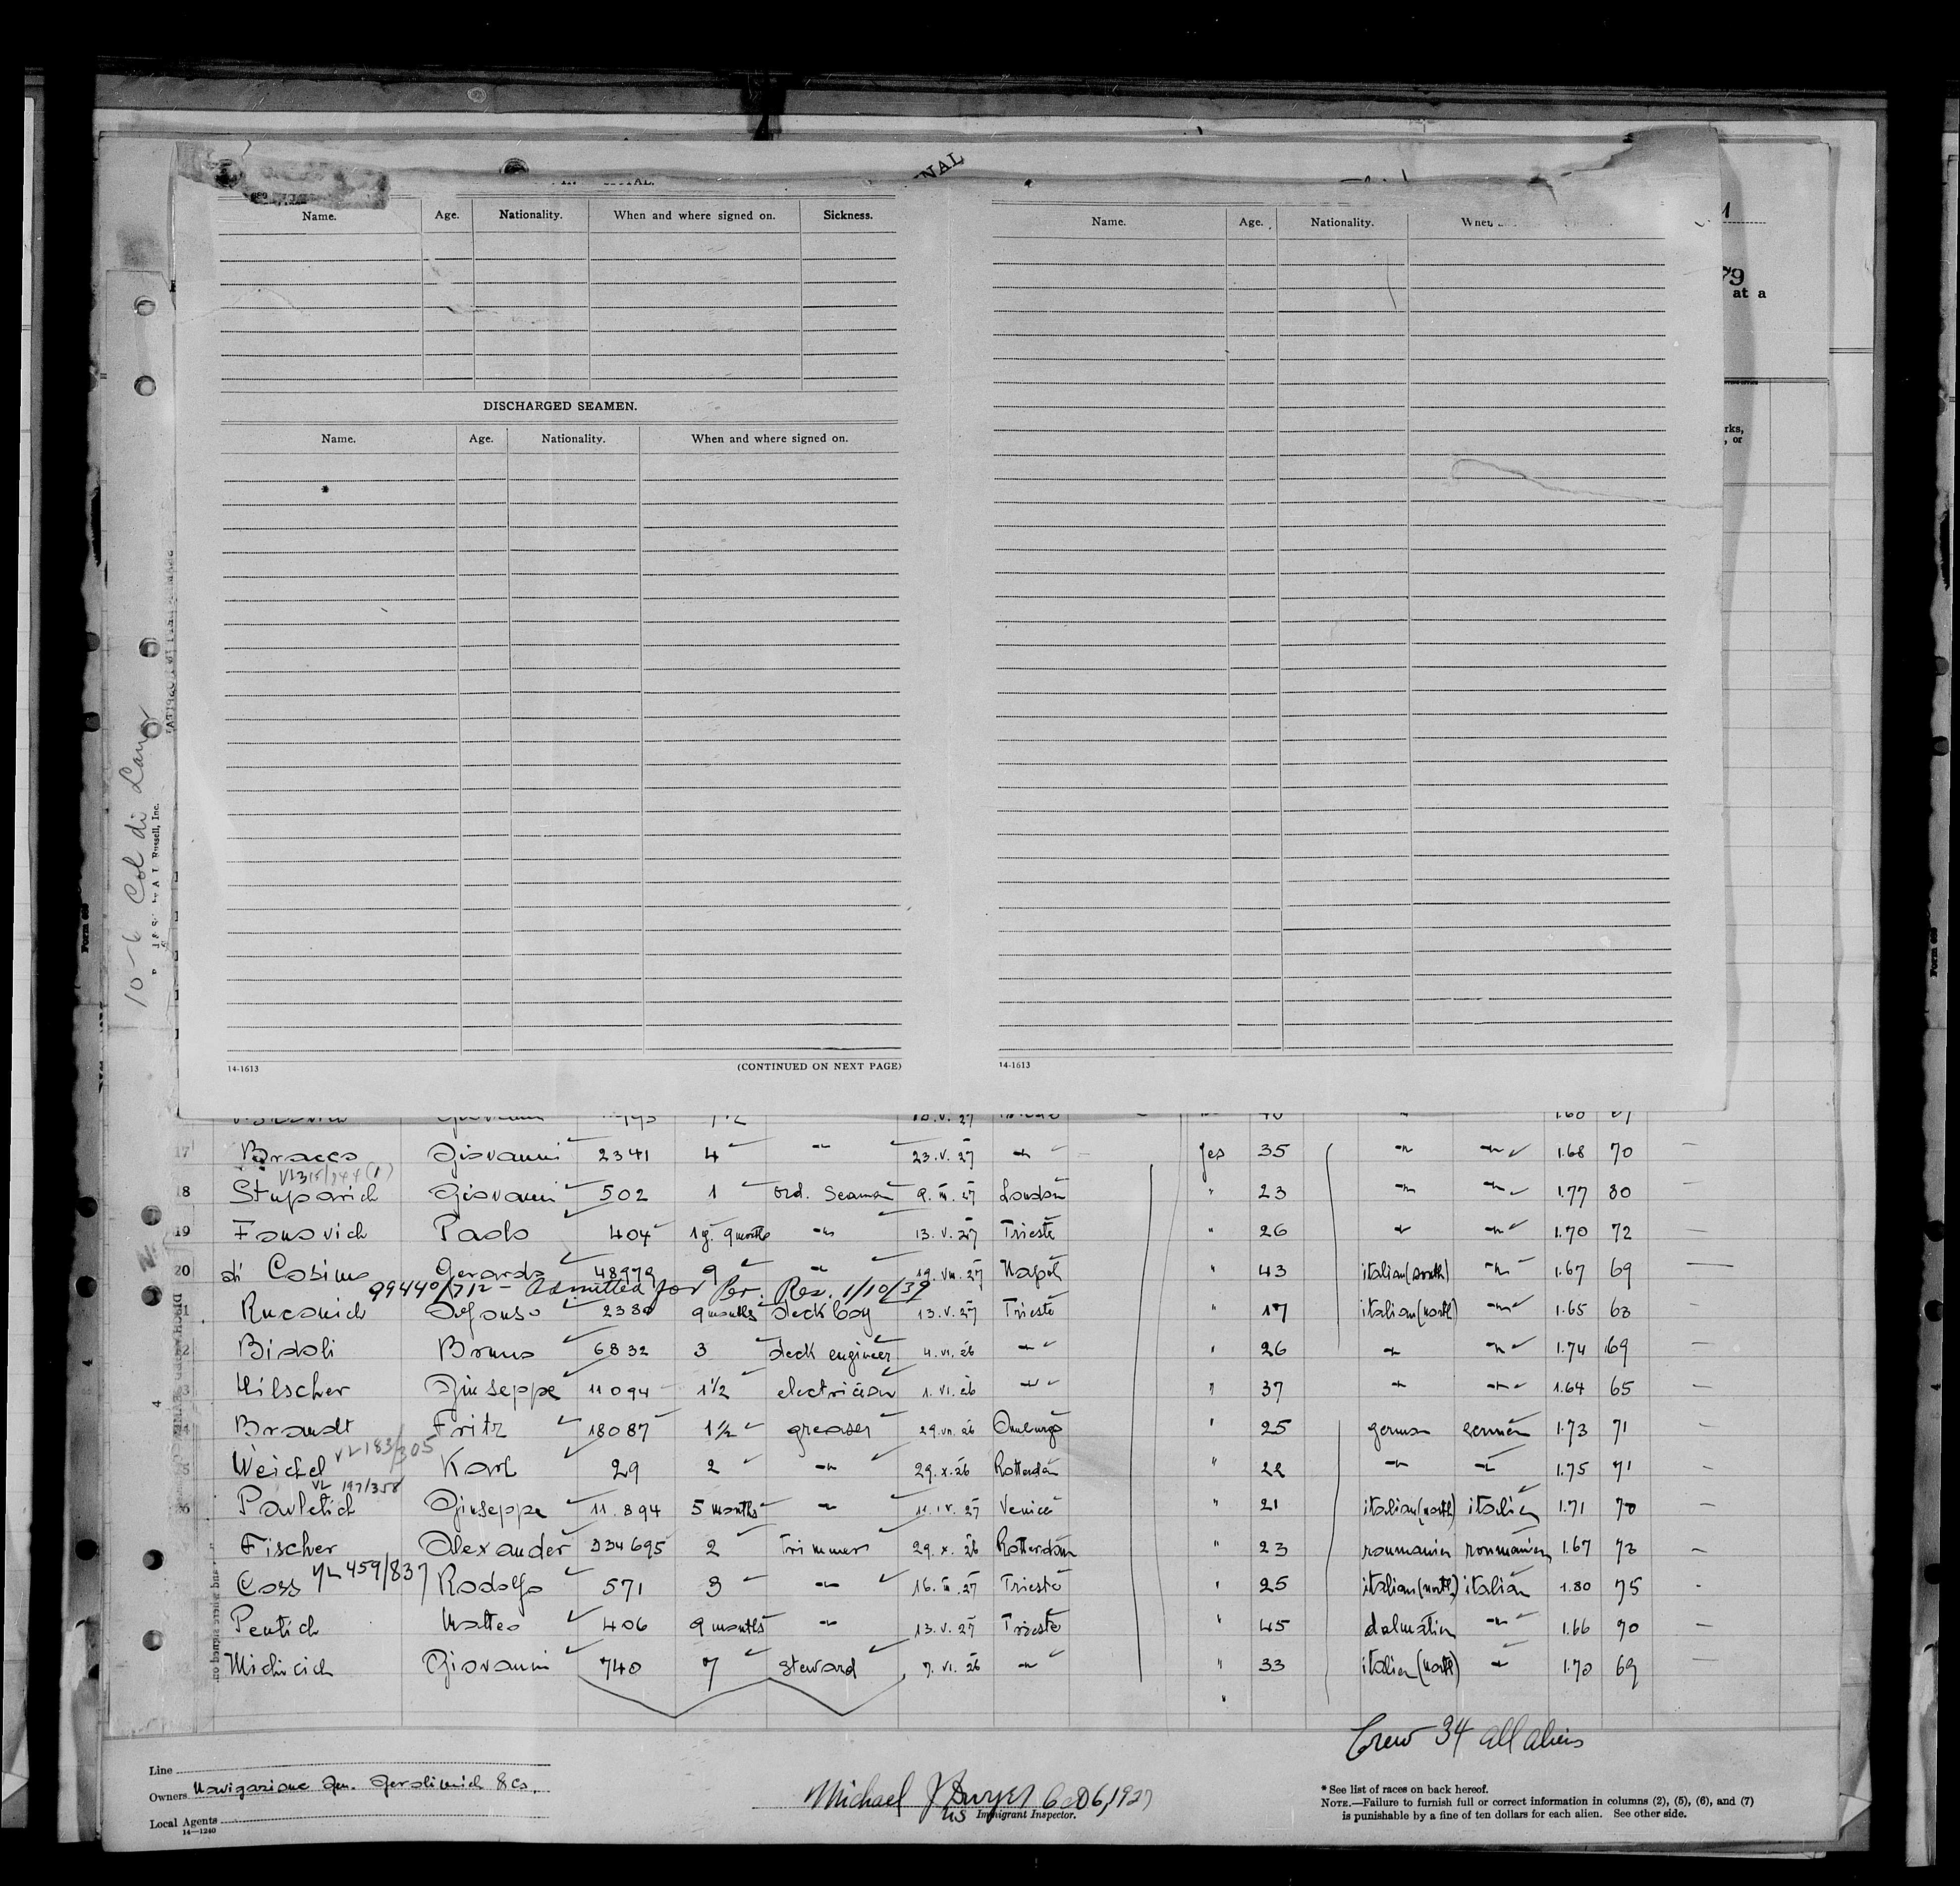 NAL
Name. Age. Nationality. When and where signed on. Sickness.
Name. Age. Nationality.
79
at a
rks,
, or
DISCHARGED SEAMEN.
Name. Age. Nationality. When and where signed on.
14-1613 (CONTINUED ON NEXT PAGE)
14-1613
10-6 Col di Lana
Russell, Inc.
Form 68
17 Bracco Giovanni 2341 4 " 23.V.27 " Yes 35 " " 1.68 70 —
18 Stuparich Giovanni 502 1 ord. Seaman 9.III.27 London " 23 " " 1.77 80 —
19 Fonovich Paolo 404 1 y. 9 months " 13.V.27 Trieste " 26 " " 1.70 72 —
20 di Cosimo Gerardo 48979 9 " 19.VII.27 Napoli " 43 italian (south) " 1.67 69 —
99440/712 - Admitted for Per. Res. 1/10/39
21 Ruconich Alfonso 2380 9 months deck boy 13.V.27 Trieste " 17 italian (north) " 1.65 63 —
2 Bidoli Bruno 6832 3 deck engineer 4.VI.26 " " 26 " " 1.74 69 —
3 Hilscher Giuseppe 11094 1½ electrician 1.VI.26 " " 37 " " 1.64 65 —
4 Brandt Fritz 18087 1½ greaser 29.VII.26 " 25 german german 1.73 71 —
VL 183/305
5 Weichel Karl 29 2 " 29.X.26 Rotterdam " 22 " " 1.75 71 —
VL 197/358
26 Pavletich Giuseppe 11.894 5 months " 11.IV.27 Venice " 21 italian (north) italian 1.71 70 —
Fischer Alexander 334695 2 Trimmer 29.X.26 Rotterdam " 23 roumanian roumanian 1.67 73 —
VL 459/837
Coss Rodolfo 571 3 " 16.III.27 Trieste " 25 italian (north) italian 1.80 75 -
Pentich Matteo 406 9 months " 13.V.27 Trieste " 45 dalmatian " 1.66 70 —
Michicich Giovanni 740 7 steward 7.VI.26 " " 33 italian (north) " 1.70 69 —
Crew 34 all aliens
Line
Owners Navigazione Gen. Gerolimich & Co.
Local Agents
14—1240
Michael J Dwyer Oct 6, 1927
US Immigrant Inspector.
* See list of races on back hereof.
NOTE.—Failure to furnish full or correct information in columns (2), (5), (6), and (7)
is punishable by a fine of ten dollars for each alien. See other side.